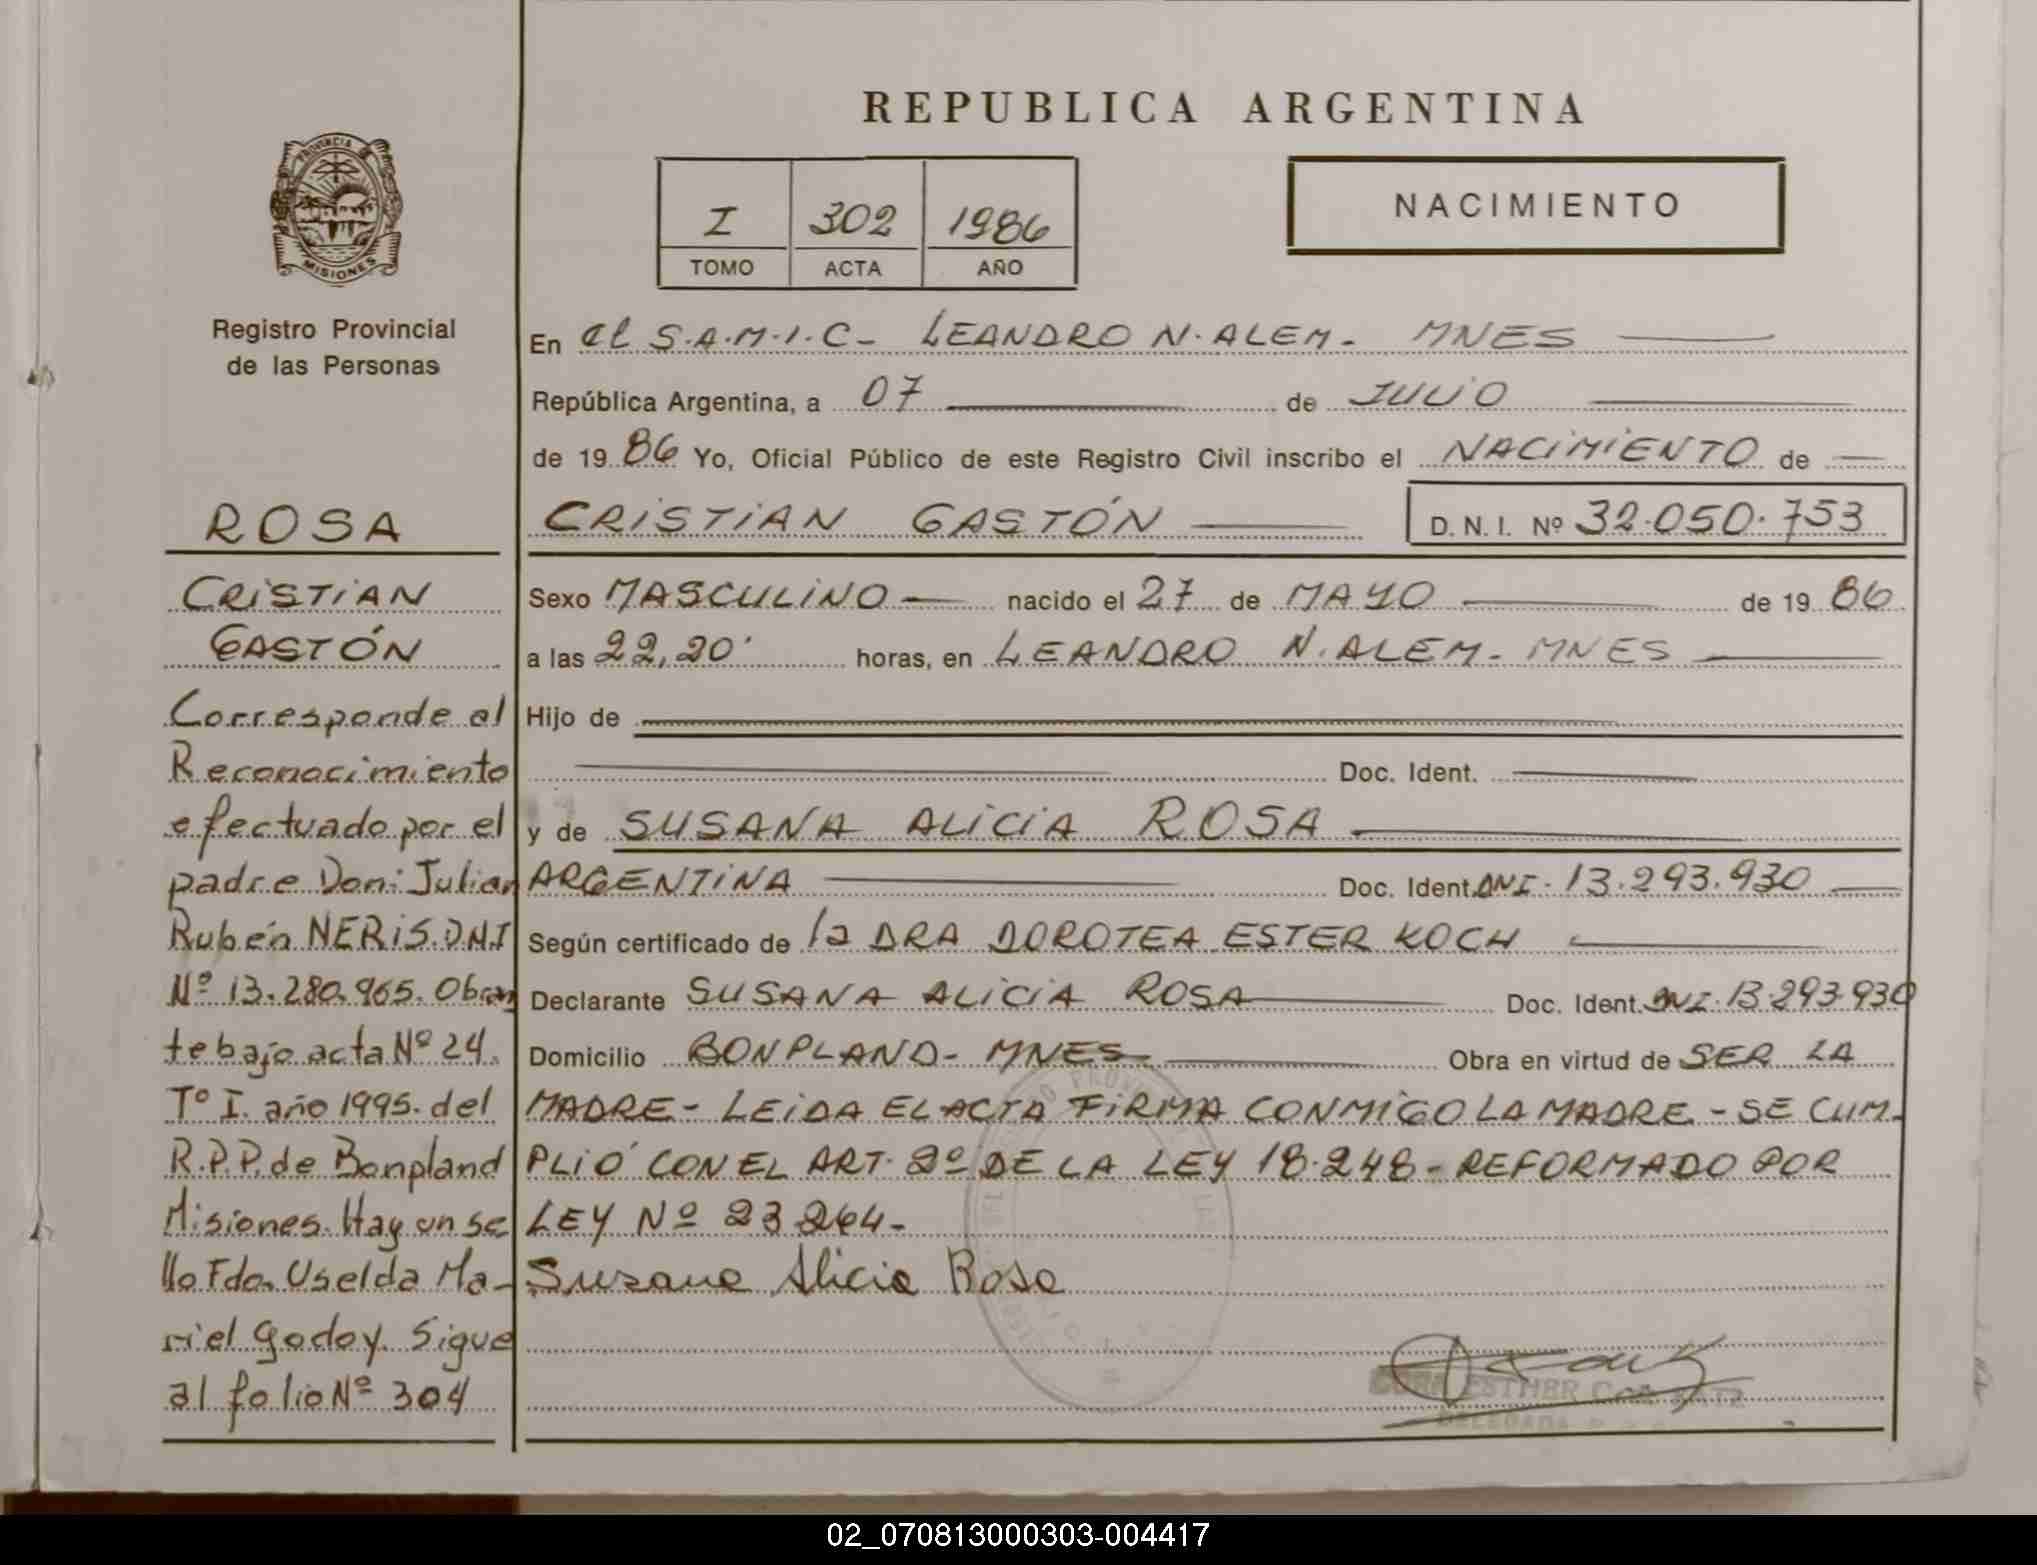 REPUBLICA ARGENTINA
PROVINCIA DE
MISIONES
Registro Provincial
de las Personas
I 302 1986
TOMO ACTA AÑO
NACIMIENTO
ROSA
CRISTIAN
GASTÓN
Corresponde al
Reconocimiento
efectuado por el
padre Don: Julian
Rubén NERIS.D.N.I
Nº 13.280.965. Obran
te bajo acta Nº 24.
Tº I. año 1995. del
R.P.P. de Bonpland
Misiones. Hay un se
llo Fdo. Uselda Ma-
riel Godoy. Sigue
al folio Nº 304
En el S.A.M.I.C- LEANDRO N. ALEM- MNES
República Argentina, a 07 de JULIO
de 19 86 Yo, Oficial Público de este Registro Civil inscribo el NACIMIENTO de
CRISTIAN GASTÓN D.N.I. Nº 32.050.753
Sexo MASCULINO nacido el 27 de MAYO de 19 86
a las 22,20' horas, en LEANDRO N. ALEM- MNES
Hijo de
Doc. Ident.
y de SUSANA ALICIA ROSA
ARGENTINA Doc. Ident. DNI- 13.293.930
Según certificado de la DRA DOROTEA ESTER KOCH
Declarante SUSANA ALICIA ROSA Doc. Ident. DNI- 13.293.930
Domicilio BONPLAND- MNES Obra en virtud de SER LA
MADRE- LEIDA EL ACTA FIRMA CONMIGO LA MADRE.- SE CUM-
PLIÓ CON EL ART. 2º DE LA LEY 18.248- REFORMADO POR
LEY Nº 23.264-
Susana Alicia Rosa
ESTHER
DELEGADA
02_070813000303-004417